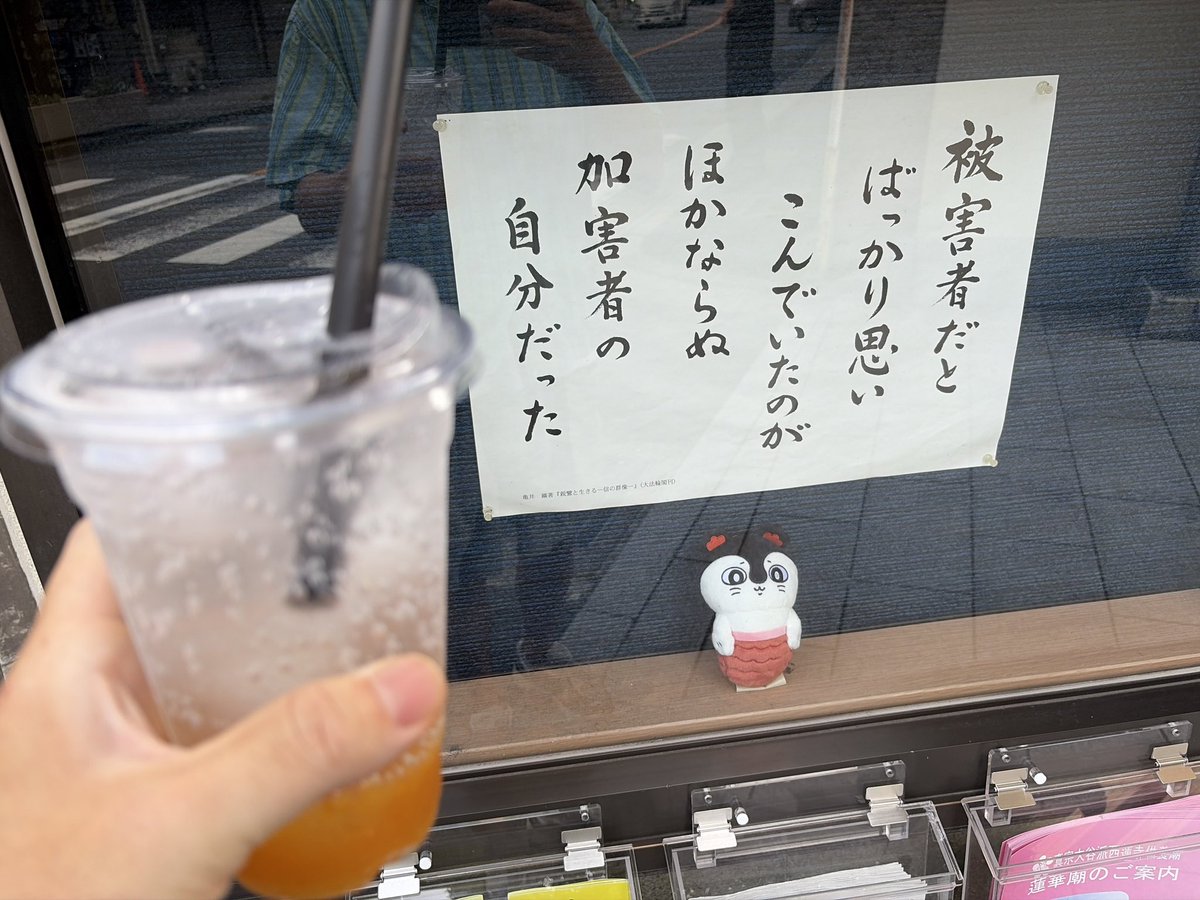 被害者だと
ばっかり思い
こんでいたのが
ほかならぬ
加害者の
自分だった
亀井　鑛著『親鸞と生きる―信の群像―』（大法輪閣刊）
真宗大谷派西蓮寺
蓮華潮のご案内